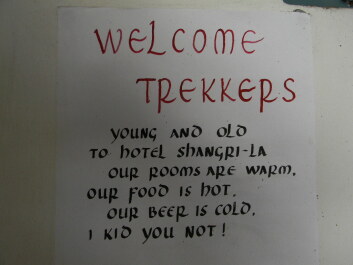 WELCOME
TREKKERS
YOUNG AND OLD
TO HOTEL SHANGRI-LA
OUR ROOMS ARE WARM.
OUR FOOD IS HOT.
OUR BEER IS COLD.
I KID YOU NOT!